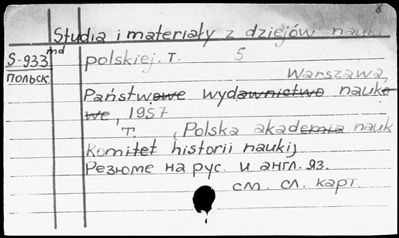 8
Studia i materiały z dziejów nauki
S-933 md polskiej. т. 5
польск. Warszawa,
Państwowe wydawnictwo nauko
we, 1957
т. , Polska akademia nauk
Komitet historii nauki)
Резюме на рус. и англ. яз.
см. сл. карт.